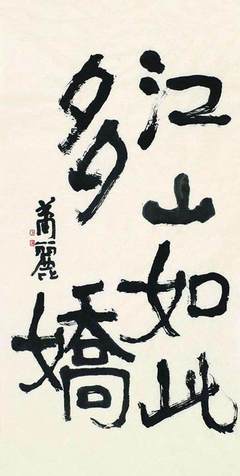 江山如此
多嬌
蕭麗